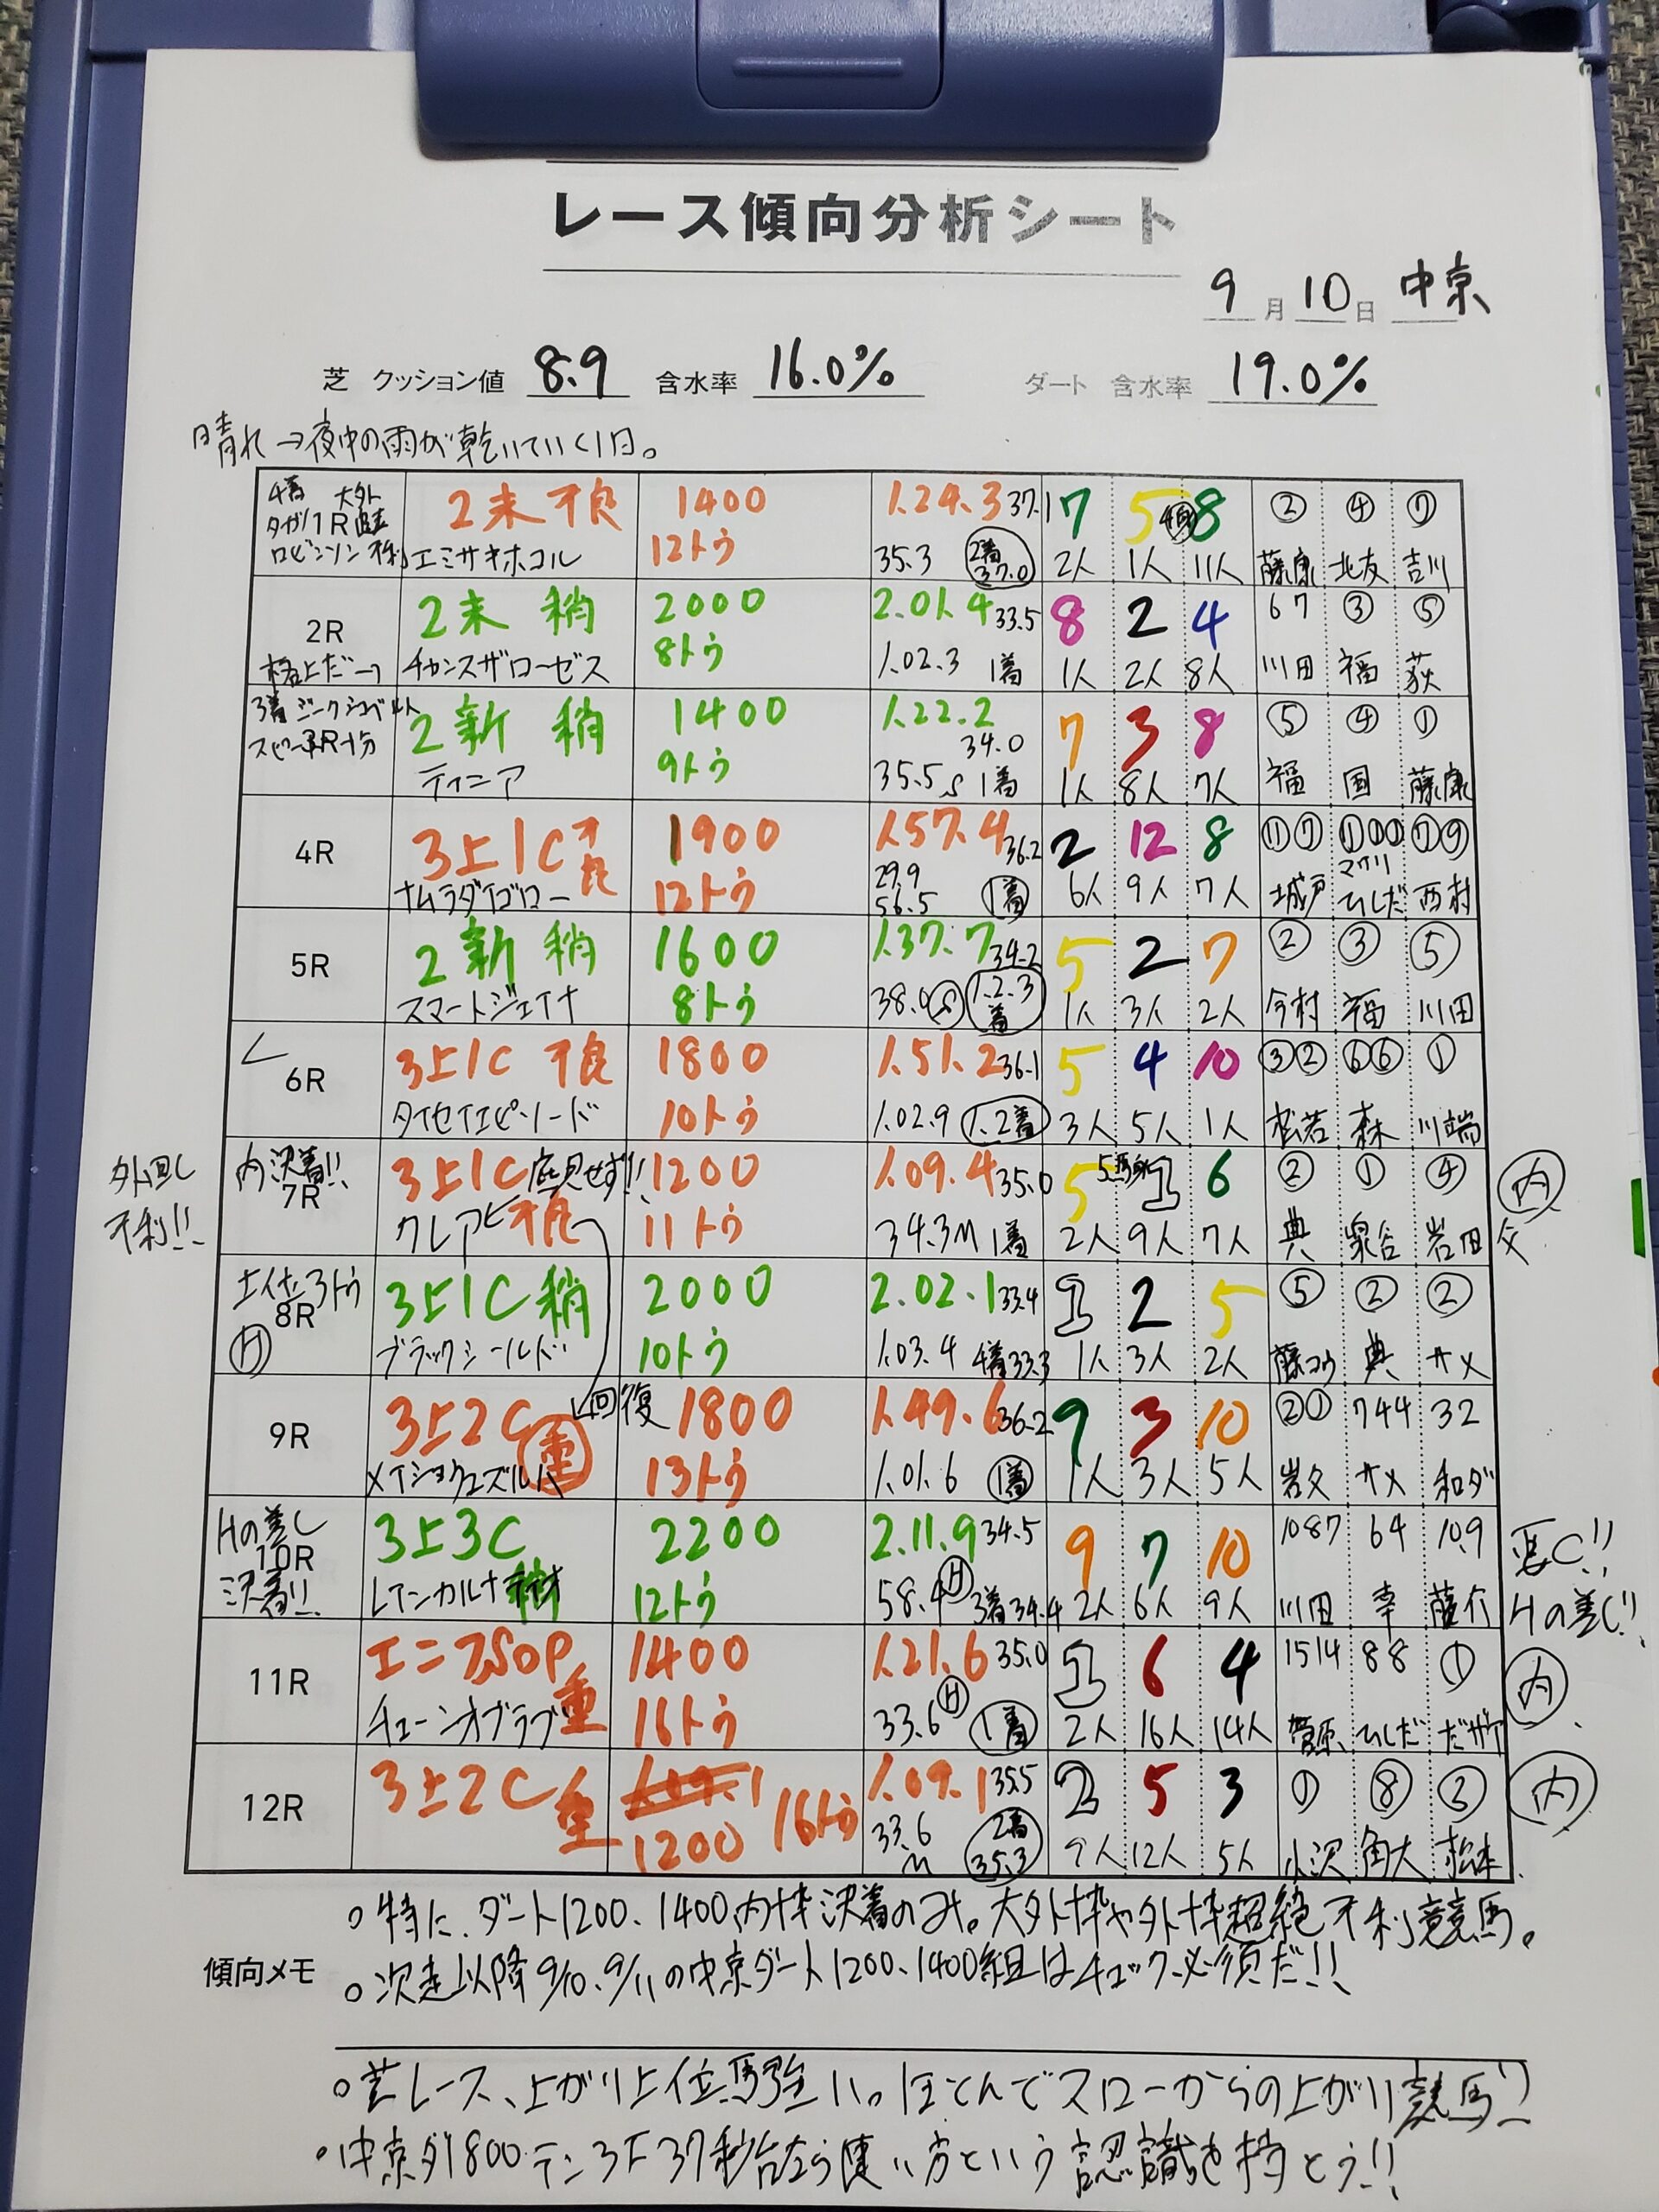 レース傾向分析シート
9月10日 中京
芝 クッション値 8.9 含水率 16.0% ダート 含水率 19.0%
晴れ→夜中の雨が乾いていく1日。
4着 大外 2未 不良 1400 1.24.3 37.1 7 5 8 ② ④ ⑦
1R
エミサキホコル 12トウ 35.3 2着 37.0 2人 1人 11人 藤康 北友 吉川
2未 稍 2000 2.01.4 33.5 8 2 4 67 ③ ⑤
2R 8トウ
格上だー→ チャンスザローゼス 1.02.3 1着 1人 2人 8人 川田 福 荻
3着 ジークシュベルト 2新 稍 1400 1.22.2 34.0 7 3 8 ⑤ ④ ①
3R
ティニア 9トウ 35.5 S 1着 1人 8人 7人 福 国 藤康
4R 3上1C 不良 1900 1.57.4 36.2 2 12 8 ⑪⑦ ⑦⑨
29.9 マクリ
ナムラダイゴロー 12トウ 56.5 1着 6人 9人 7人 城戸 ひしだ 西村
5R 2新 稍 1600 1.37.7 34.2 5 2 7 ② ③ ⑤
スマートジェイナ 8トウ 38.0 S 1.2.3着 1人 3人 2人 今村 福 川田
6R 3上1C 不良 1800 1.51.2 36.1 5 4 10 ③② ⑥⑥ ①
タイセイエピソード 10トウ 1.02.9 1.2着 3人 5人 1人 松若 森 川端
外回し 不利!! 内決着!! 3上1C 1200 1.09.4 35.0 5 5馬身 1 6 ② ① ④ 内
7R
クレアヒ 不良 11トウ 34.3M 1着 2人 9人 7人 典 泉谷 岩田 父
上位3トウ 3上1C 稍 2000 2.02.1 33.4 1 2 5 ⑤ ② ②
8R
H ブラックシールド 10トウ 1.03.4 4着33.3 1人 3人 2人 藤コウ 典 サメ
9R 3上2C 重 回復 1800 1.49.6 36.2 9 3 10 ②① 744 32
メイショウユズルハ 13トウ 1.01.6 1着 1人 3人 5人 岩父 サメ 和ダ
Hの差し 3上3C 2200 2.11.9 34.5 9 7 10 1087 64 10.9 要C!!
10R
決着!! レインカルナティオ 稍 12トウ 58.4 H 3着34.4 2人 6人 9人 川田 幸 藤介 Hの差し!!
11R エニフSOP 重 1400 1.21.6 35.0 1 6 4 1514 88 ① 内
チェーンオブラブ 16トウ 33.6 H 1着 2人 16人 14人 菅原 ひしだ
12R 3上2C 重 1200 16トウ 1.09.1 35.5 2 5 3 ① ⑧ ③ 内
33.6 M 2着 35.3 9人 12人 5人 小沢 角大 松本
傾向メモ
○特に、ダート1200、1400内枠決着のみ。大外枠や外枠超絶不利競馬。
○次走以降9/10、9/11の中京ダート1200、1400組はチェック必須だ!!
○芝レース、上がり上位馬強い。ほとんどスローからの上がり競馬!!
・中京ダ1800テン3F37秒台なら速い方という認識を持とう!!